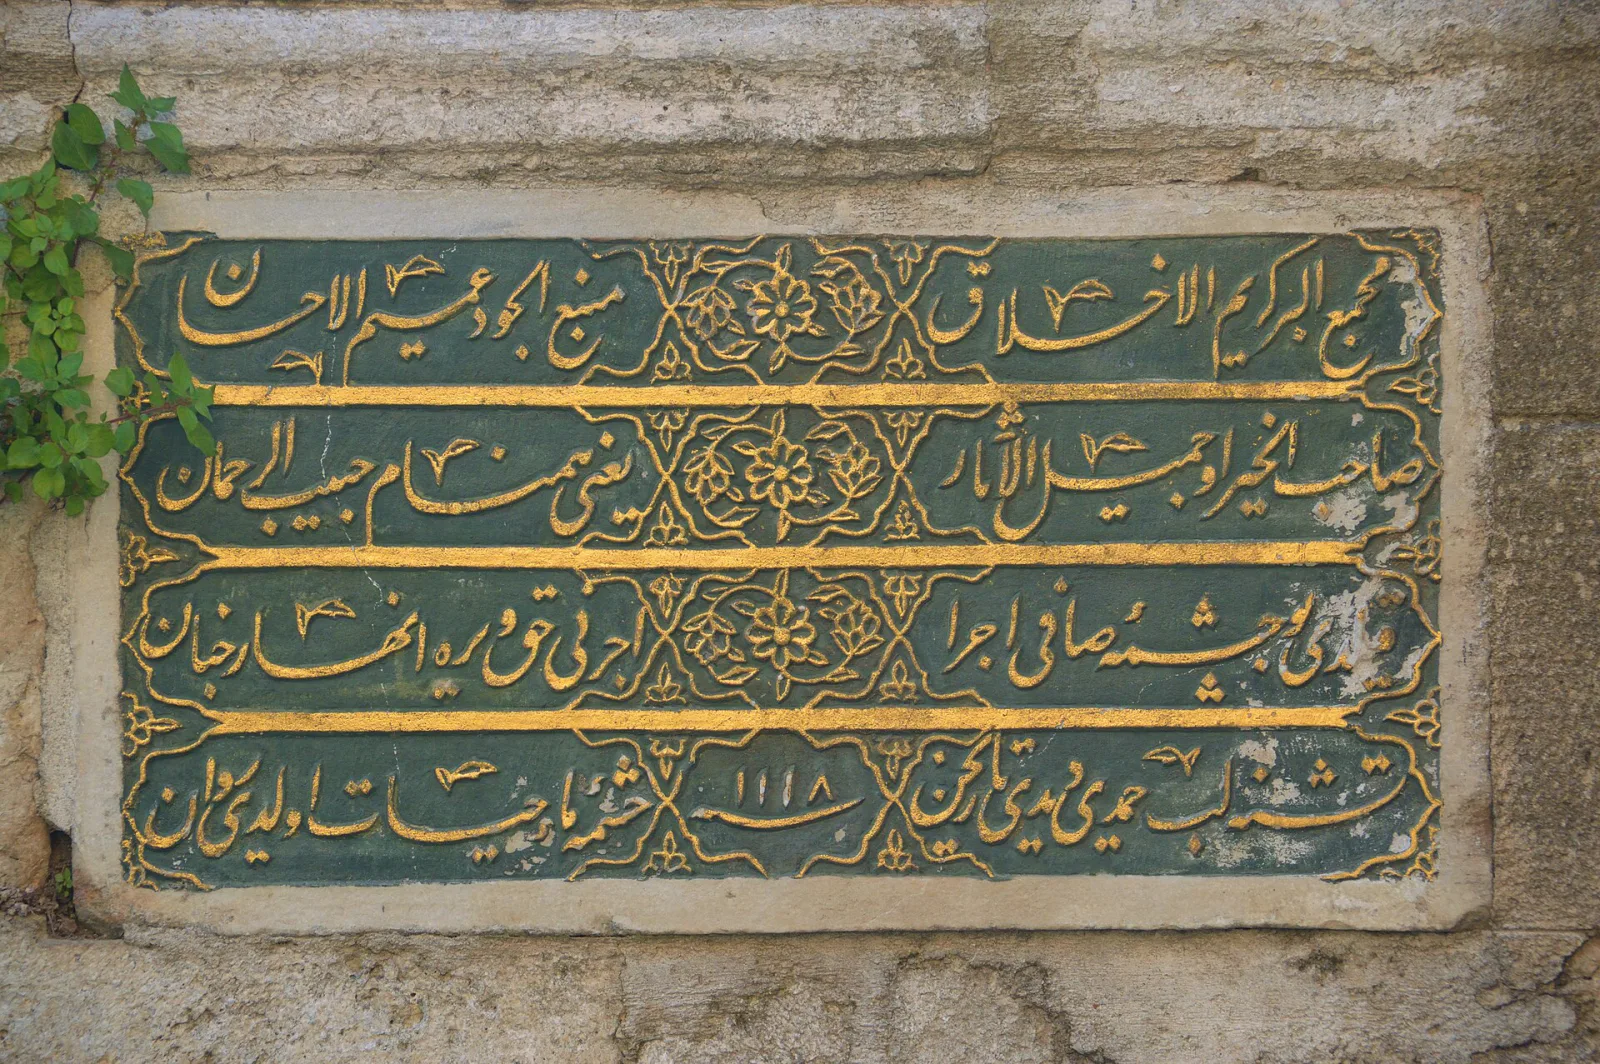 مجمع البر كريم الاخلاق منبع الجود عميم الاحسان
صاحب الخير او جميل الآثار يعنى همنام حبيب الرحمان
قيلدى بو چشمهٔ صافى اجرا اجرنى حق ويره انهار جنان
تشنه لب حمدى ديدى تاريخن چشمهٔ ماء حيات اولدى روان
١١١٨